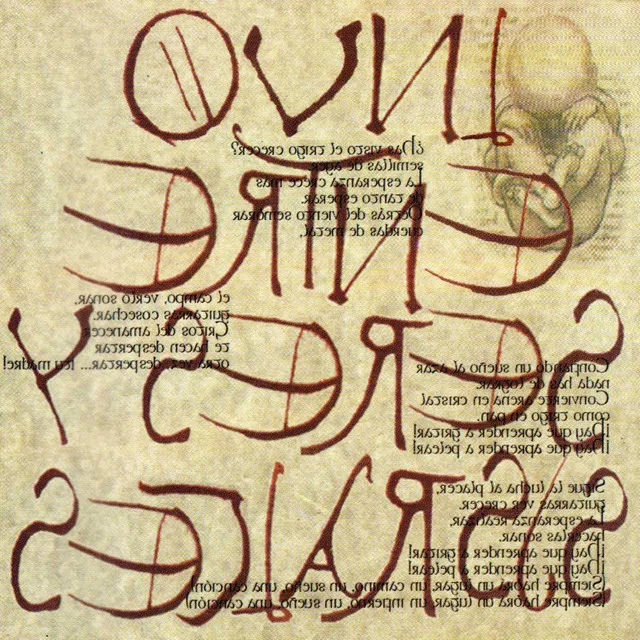 INVO
ENTRE
SERES Y
¿Has visto el trigo crecer?
semillas de ayer.
La esperanza crece mas
de tanto esperar.
Detrás del viento sembrar
cuerdas de metal,
el campo, verlo sonar,
guitarras cosechar.
Gritos del amanecer
te hacen despertar
otra vez, despertar... tu madre!
Confiando un sueño al azar
nada has de lograr.
Convierte arena en cristal
como trigo en pan.
¡Hay que aprender a gritar!
¡Hay que aprender a pelear!
Sigue la lucha al placer,
guitarras ver crecer.
La esperanza realizar,
hacerlas sonar.
¡Hay que aprender a gritar!
¡Hay que aprender a pelear!
(Siempre habrá un lugar, un camino, un sueño, una canción!
(Siempre habrá un lugar, un imperio, un sueño, una canción!